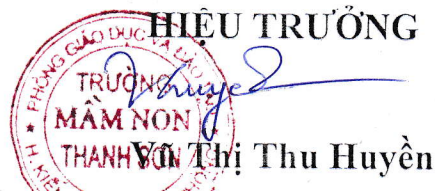 HIỆU TRƯỞNG
PHÒNG GIÁO DỤC VÀ ĐÀO
TRƯỜNG
MẦM NON
THANH SƠN
Vũ Thị Thu Huyền